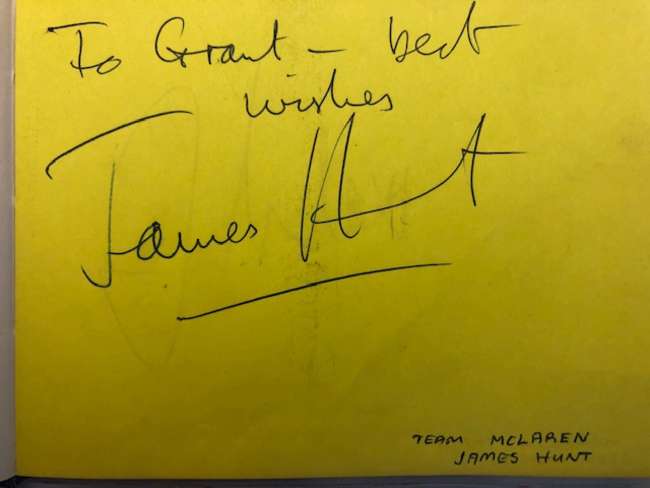 To Grant – best
wishes
James Hunt
TEAM MCLAREN
JAMES HUNT